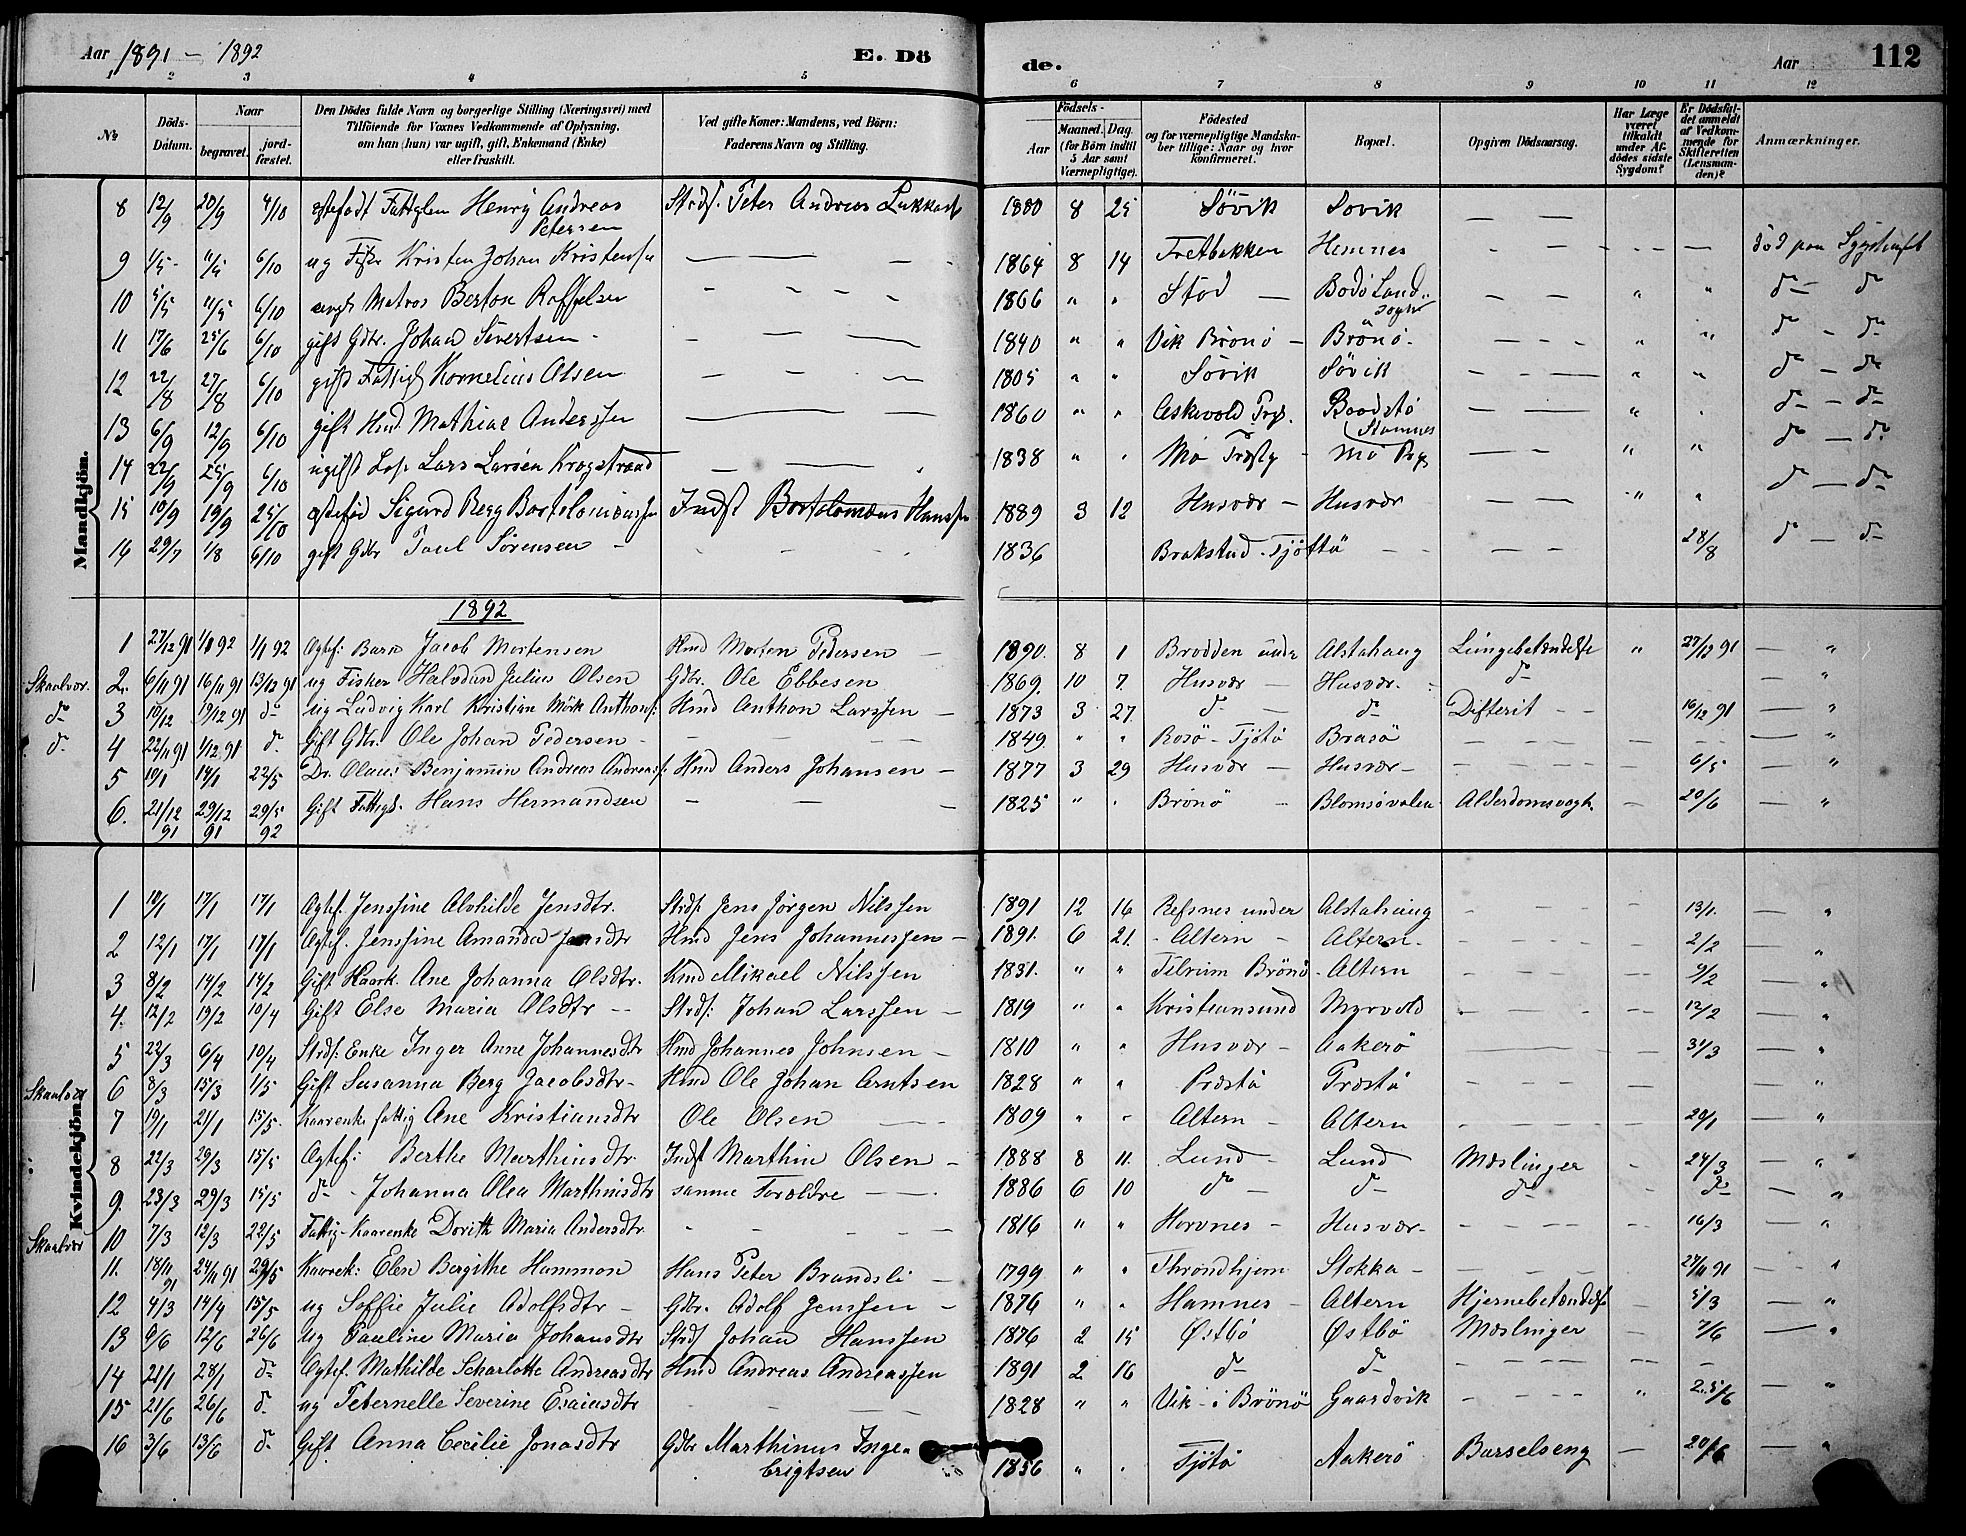 Aar 1891 – 1892 E. Dö de. Aar 112
1 2 3 4 5 6 7 8 9 10 11 12
No. Döds-Datum. Naar begravet. jordfæstet. Den Dödes fulde Navn og borgerlige Stilling (Næringsvei) med Tilföiende for Voxnes Vedkommende af Oplysning, om han (hun) var ugift, gift, Enkemand (Enke) eller fraskilt. Ved gifte Koner: Mandens, ved Börn: Faderens Navn og Stilling. Födsels- Aar Maaned. Dag. (for Börn indtil 5 Aar samt Værnepligtige). Födested og for værnepligtige Mandskaber tillige: Naar og hvor konfirmeret. Bopæl. Opgiven Dödsaarsag. Har Læge været tilkaldt under Afdödes sidste Sygdom? Er Dödsfaldet anmeldt af Vedkommende for Skifteretten (Lensmanden)? Anmærkninger.
Mandkjön.
8 12/9 20/9 4/10 Henrij Andreas Petersen Strds. Peter Andreas 1880 8 25 Sövik Sövik — —
9 1/5 11/5 6/10 ug Kristen Johan Kristenssen — — 1864 8 14 Hemnes — — död paa
10 5/5 11/5 6/10 Matros Berton Roffelsen - - - 1866 " " Stod — Bodö Landsogn — — " " do – do
11 17/6 25/6 6/10 gift Gdbr. Johan Sivertsen - — 1840 " " Vik Brönö – Brönö. - - " " do – do
12 22/8 27/8 6/10 gift Kornelius Olsen — - — 1805 " " Sövik Sövik — - — " " do – do
13 6/9 12/9 6/10 gift Hmd. Mathias Anderssen — — 1860 " " Stamnes — — " do – do
14 22/9 25/9 6/10 ugift Lars Larsen Krogstrand — — 1838 " " Mo " " do – do
15 10/9 19/9 25/10 Sigurd Berg Bartolomæussen Indst Bartolomæus Hanssen 1889 3 12 Husvær – Husvær — — " " do – do
16 29/7 1/8 6/10 gift Gdbr Paul Sörensen – 1836 Brakstad. Tjöttö - - — — 28/8 do – do
1892
1 27/12 91 1/1 92 Barn Jacob Mortensen Hmd Morten Pedersen – 1890. 8 1 Brodden under Alstahaug Lungebetændelse " 27/12 91 — "
Skaalvær. 2. 6/11 91 16/11 91 13/12 91 ug Fisker Halvdan Julius Olsen Gdbr. Ole Ebbesen 1869. 10 7. Husvær – Husvær. do — "
do 3 10/12 19/12 91 do ug Ludvig Karl Kristian Mörk Anthons: Hmd Anthon Larssen – 1873 3 27 do do Difterit - - 16/12 91 — "
do 4 22/11 91 1/12 91 do Gift Gbr. Ole Johan Pedersen – - 1849 " " Rosö – Tjötö Brasö - - - — "
5 19/1 22/5 Benjamin Andreas Andreass: Hmd Anders Johansen – 1877 3 29 Husvær – Husvær – - - - 6/5 — "
6. 21/12 91 29/12 91 29/5 92 Gift Fattigl. Hans Hermandsen – — — 1825 " " Brönö – Blomsövalen Alderdomssvagh. – 20/6 — "
Kvindekjön.
1 17/1 17/1 Ægtef. Jenssine Alvhilde Jensdtr. Strds Jens Jörgen Nilssen 1891 12 16 Refsnes under Alstahaug - - - 13/1. — "
2 12/1 17/1 17/1 Ægtef. Jenssine Amanda Jensdtr Hmd Jens Johannessen – 1891. 6 21. - Altern – Altern. - - - 2/2 — "
3 8/2 14/2 14/2 Gift Ane Johanna Olsdtr. Hmd Mikael Nilssen 1831. " " Brönö. Altern - - - 9/2 — "
4. 12/2 19/2 10/4 Gift Else Maria Olsdtr -- Strds: Johan Larssen – 1819 " " Kristiansund Myrvold - - - 12/2 — "
5 22/3 6/4 10/4 Strds: Enke Inger Anne Johannesdtr Hmd Johannes Johnsen – 1810 " " Husvær – Aakerö — 31/3 — "
Skaalvær 6 8/3 15/3 1/5 Gift Susanna Berg Jacobsdtr – Hmd Ole Johan Arntsen 1828 " " Præstö Præstö - - - — "
7 19/1 21/1 15/5. fattig Ane Kristiansdtr Ole Olsen — 1809 " " Altern – Altern - - - 20/1 — "
8 22/3 29/3 15/5 Ægtef: Berthe Marthinsdtr. Indst Marthin Olsen – 1888 8 11. Lund – Lund Mæslinger – 24/3 — "
9. 23/3 29/3 15/5 do Johanna Olea Marthinsdtr samme Forældre – – 1886 6 10 do do do – do — "
Skaalvær 10 7/3 12/3 22/5 Fattig- Dorith Maria Andersdtr - - - 1816 " " Horvnes – Husvær – - - - 16/3 — "
11. 18/11 91 24/11 91 29/5 Elen Bergithe Hammon Hans Peter Brandsli – 1799 " " Throndhjem Stokka – - - - 27/11 91 — "
12 4/3 14/4 15/5 ug Soffie Julie Adolfsdtr – Gdbr. Adolf Jenssen – 1876 " " Hamnes – Altern Hjernebetændelse – 5/3 — "
13 9/6 12/6 26/6 ug Pauline Maria Johansdtr Strds Johan Hanssen 1876 2 15 Østbö Østbö Mæslinger – 7/6 — "
14 21/1 28/1 do Ægtef. Mathilde Scharlotte Andreasdtr Hmd Andreas Andreassen 1891 2 16 do do - - - –
15 21/6 26/6 do ug Peternelle Severine Esaiasdtr - - - 1828 " " Vik – i Brönö Gaardvik - - - " 25/6 — "
16 3/6 13/6 do Gift Anna Cecilie Jonasdtr Gdbr Marthinus Inge Erigtsen 1856 " " Tjötö Aakerö Barselseng – 20/6 — "